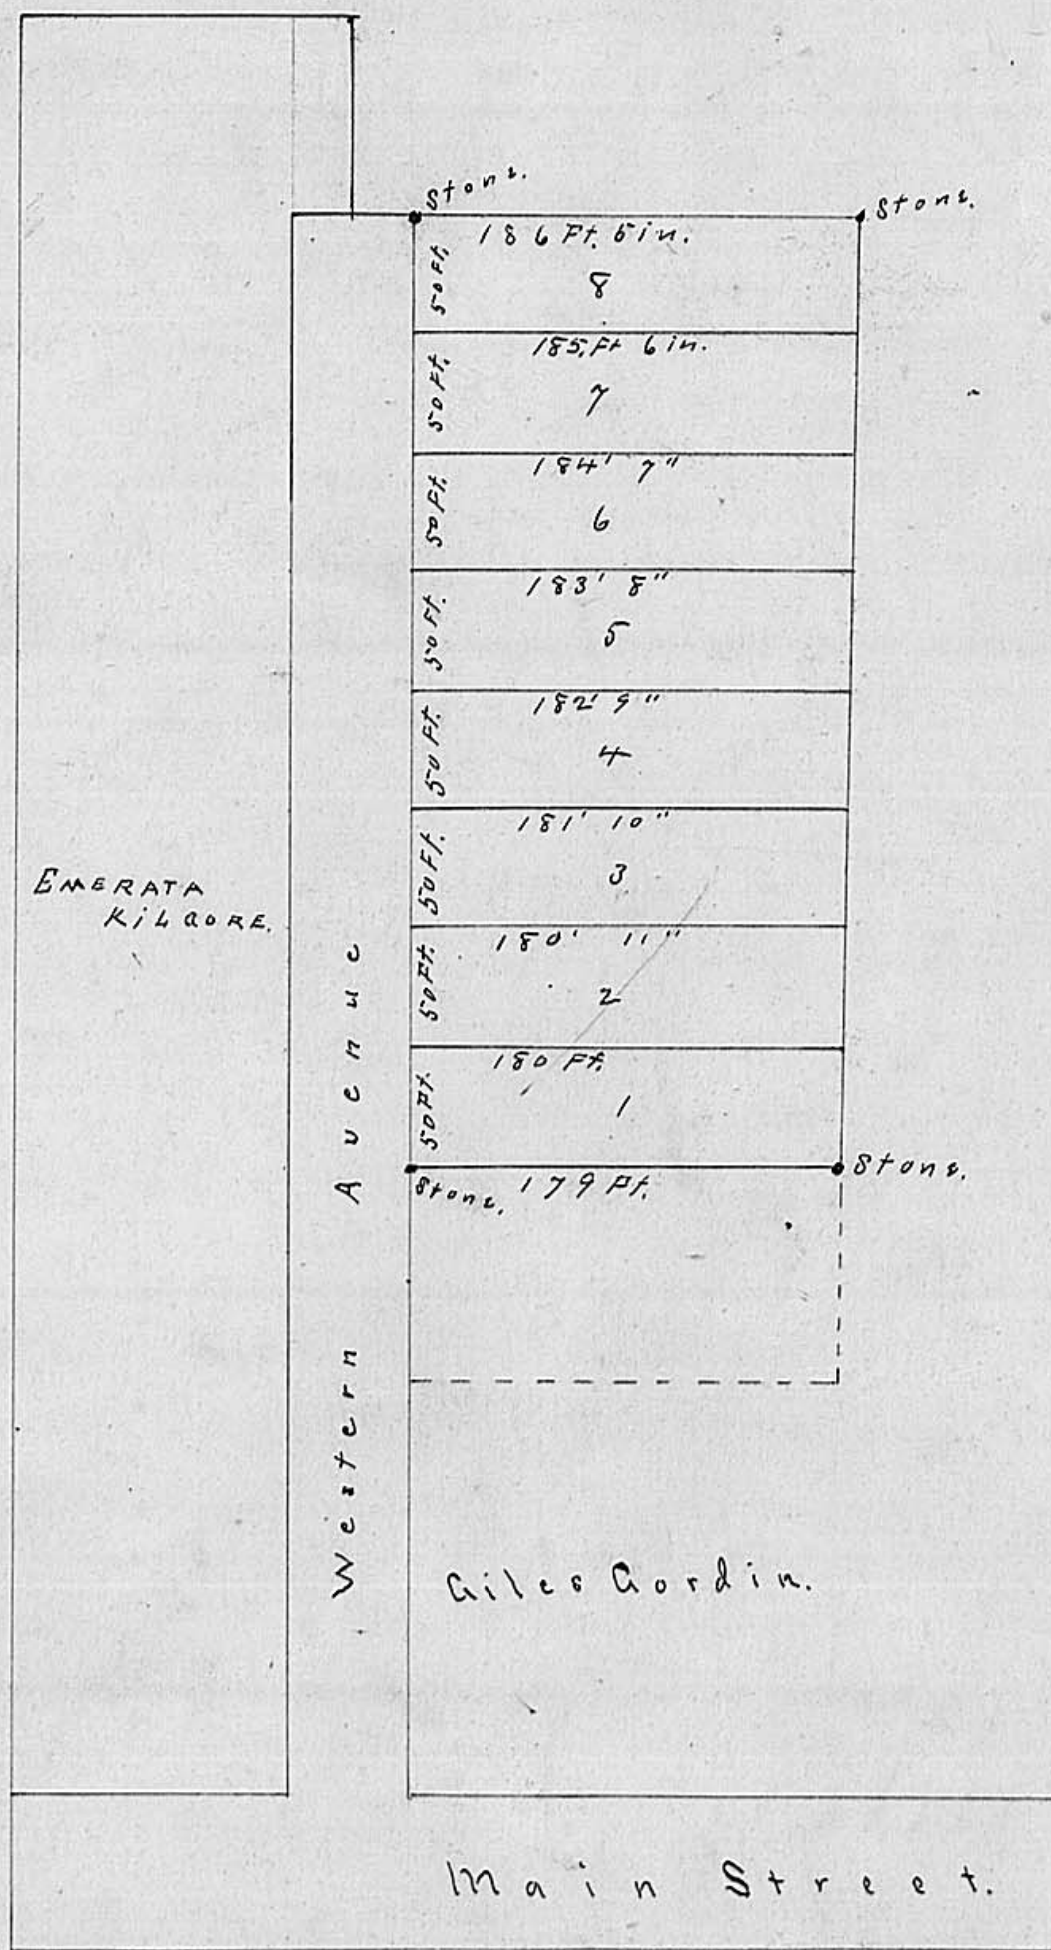 Stone.
Stone.
186 Ft. 5 in.
50 Ft.
8
185. Ft 6 in.
50 Ft.
7
184' 7"
50 Ft.
6
183' 8"
50 Ft.
5
182' 9"
50 Ft.
4
181' 10"
50 Ft.
3
EMERATA
KILGORE.
180' 11"
50 Ft.
2
180 Ft.
50 Ft.
1
Stone.
179 Ft.
Stone.
Western Avenue
Giles Gordin.
Main Street.